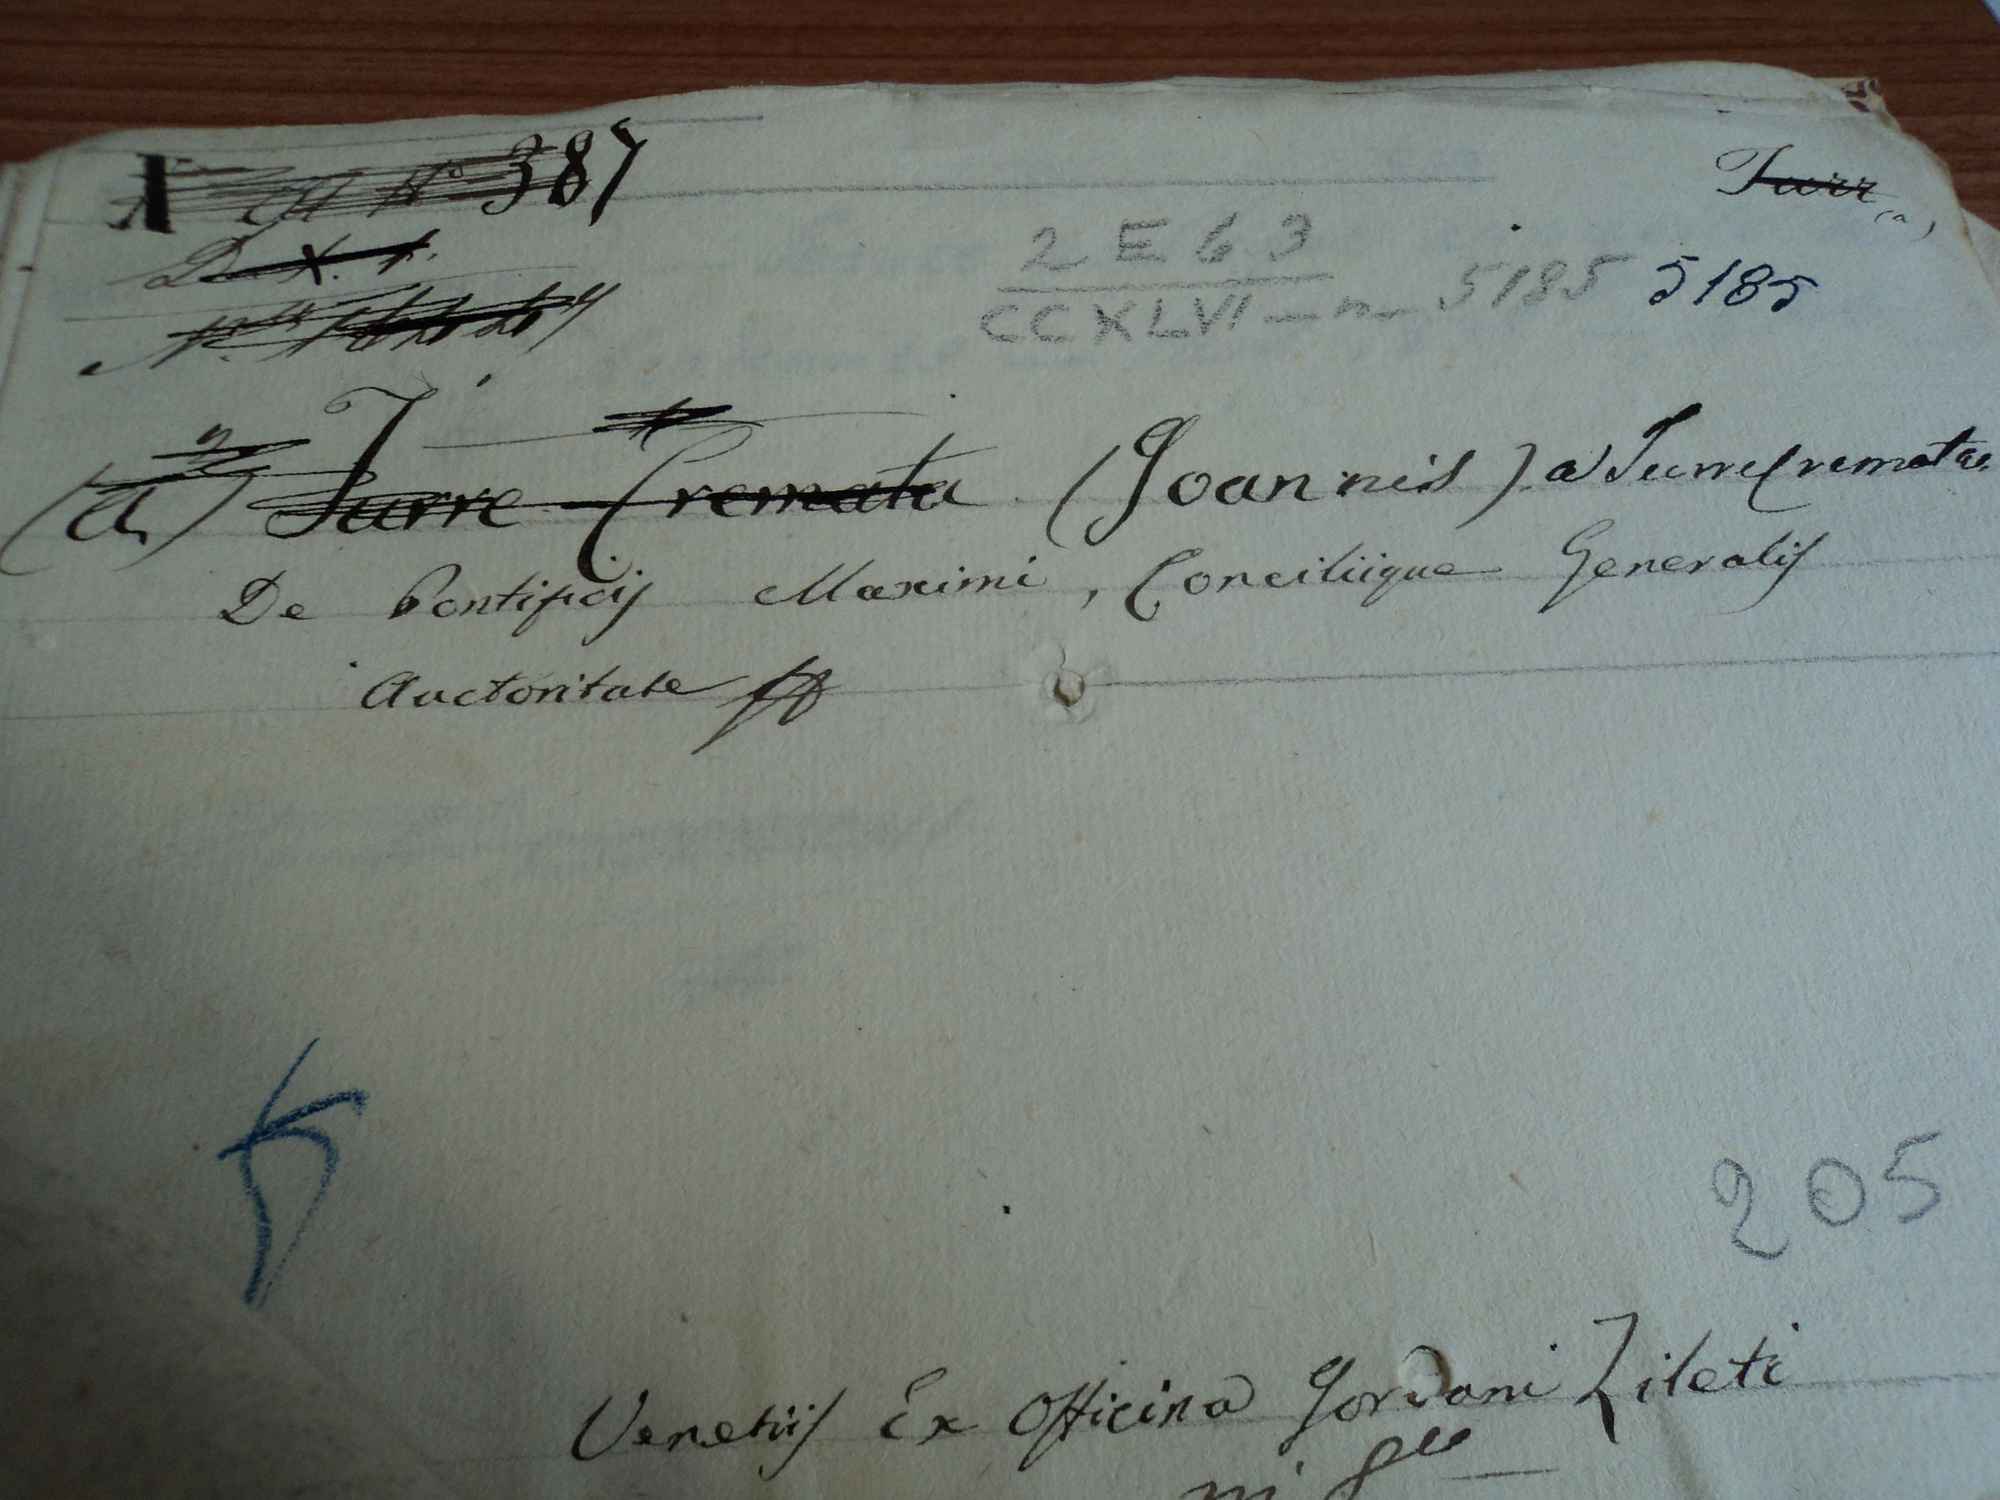 387
Turr
(a)
2 E 6 3
CCXLVI - n. 5185 5185
(a) Turre Cremata (Joannis) a Turrecremata
De Pontificis Maximi, Conciliique Generalis
Auctoritate
205
Venetiis Ex Officina Jordani Zileti
in 8vo